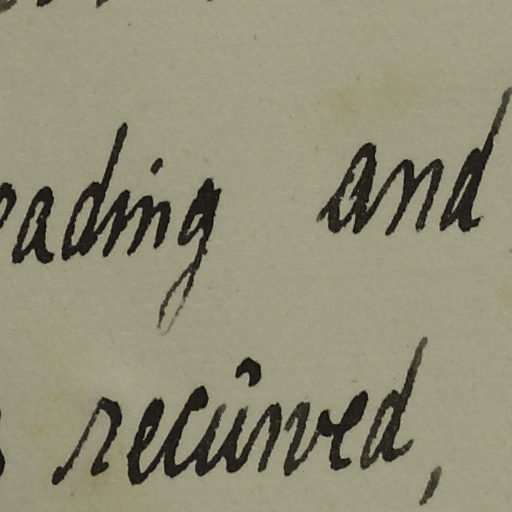 eading and
s recurved,